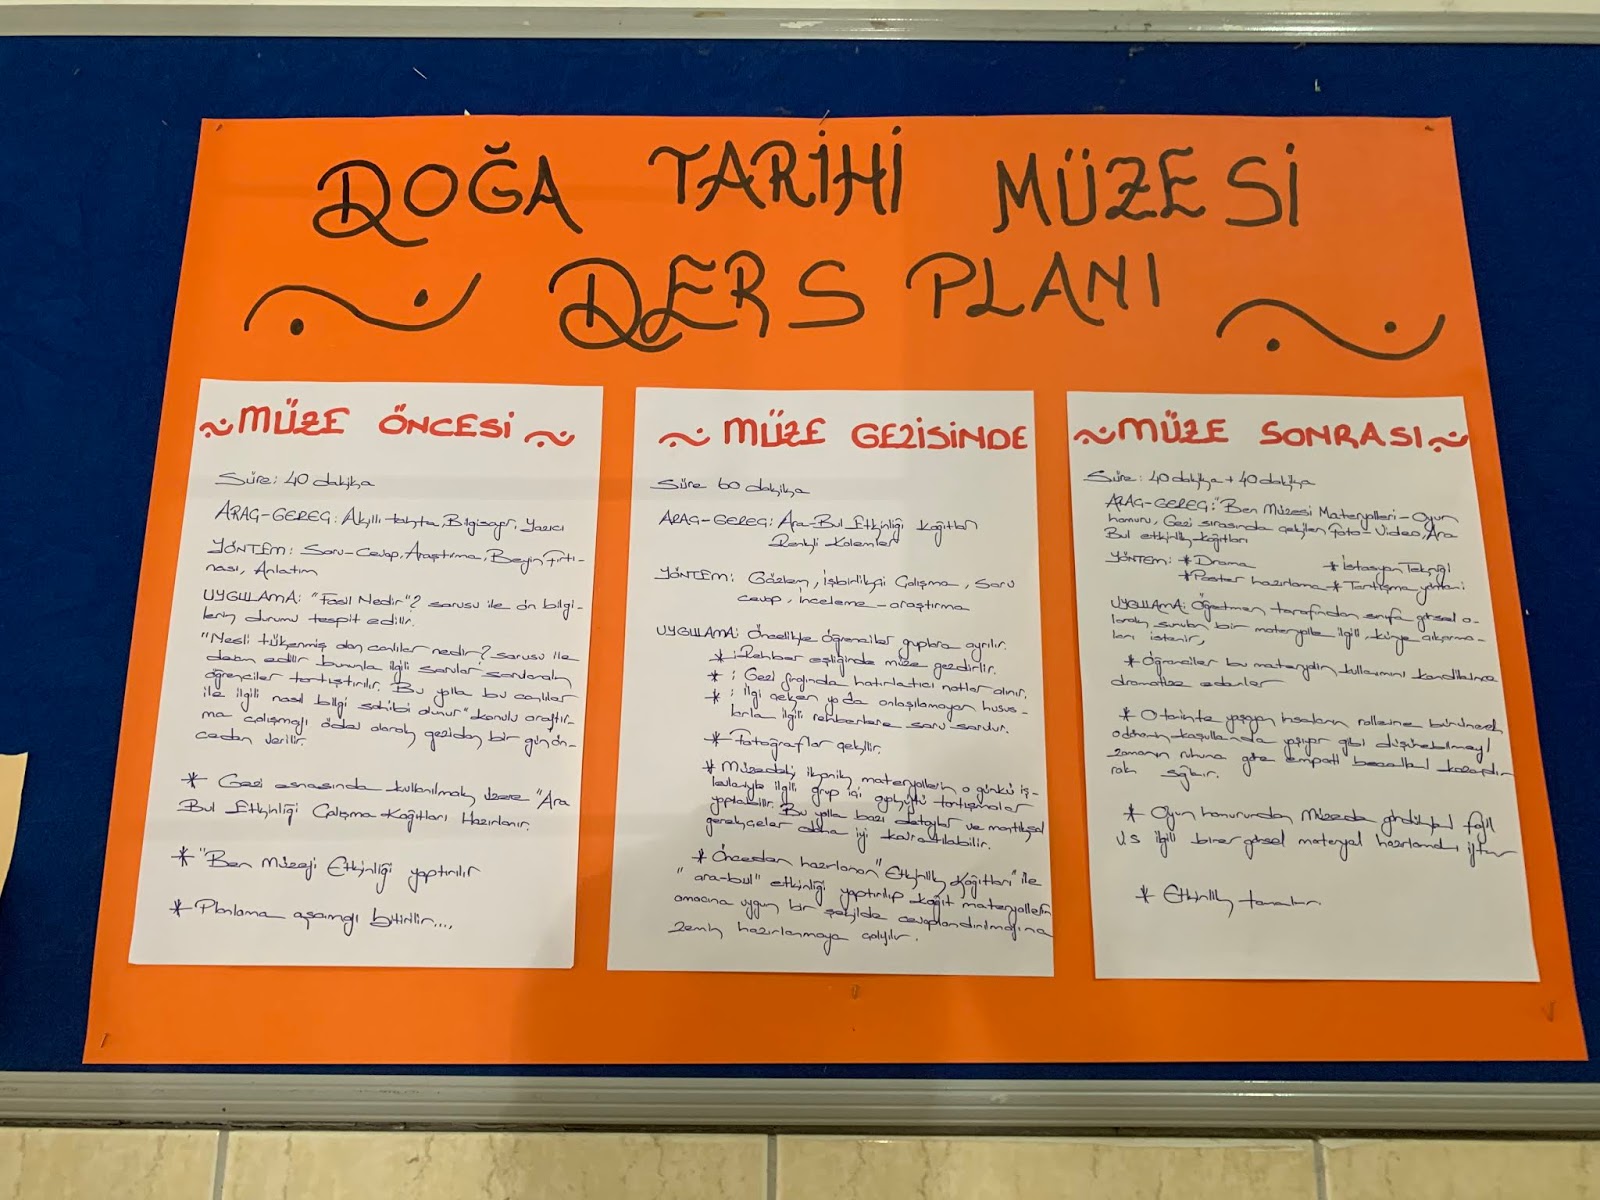 DOĞA TARİHİ MÜZESİ
DERS PLANI
MÜZE ÖNCESİ
Süre: 40 dakika
ARAÇ-GEREÇ: Akıllı tahta, Bilgisayar, Yazıcı
YÖNTEM: Soru-Cevap, Araştırma, Beyin Fırtı-
nası, Anlatım
UYGULAMA: "Fosil Nedir"? sorusu ile ön bilgi-
lerin durumu tespit edilir.
"Nesli tükenmiş olan canlılar nedir? sorusu ile
devam edilir bununla ilgili sorular sorularak
öğrenciler tartıştırılır. Bu yolla bu canlılar
ile ilgili nasıl bilgi sahibi olunur" konulu araştır-
ma çalışmağı ödev olarak geziden bir gün ön-
ceden verilir.
* Gezi esnasında kullanılmak üzere "Ara
Bul Etkinliği Çalışma Kağıtları Hazırlanır.
* "Ben Müzeji Etkinliği yaptırılır
* Planlama aşamağı bitirilir....
MÜZE GEZİSİNDE
Süre 60 dakika
ARAÇ-GEREÇ: Ara-Bul Etkinliği Kağıtları
Renkli Kalemler
YÖNTEM: Gözlem, İşbirlikçi Çalışma, soru
cevap, inceleme-araştırma
UYGULAMA: Öncelikle öğrenciler gruplara ayrılır.
* : Rehber eşliğinde müze gezdirilir.
* : Gezi sırasında hatırlatıcı notlar alınır.
* : İlgi çeken ya da anlaşılamayan husus-
larla ilgili rehberlere soru sorulur.
* Fotoğraflar çekilir.
* Müzedeki ikonik materyallerin o günkü iş-
levleriyle ilgili grup içi tartışmalar
yapılabilir. Bu yolla bazı detaylar ve mantıksal
gerekçeler daha iyi kavratılabilir.
* Önceden hazırlanan "Etkinlik Kağıtları" ile
"ara-bul" etkinliği yaptırılıp kağıt materyallerin
amacına uygun bir şekilde cevaplandırılmağına
zemin hazırlanmaya çalışılır.
MÜZE SONRASI
Süre: 40 dakika + 40 dakika
ARAÇ-GEREÇ: "Ben Müzesi Materyalleri - Oyun
hamuru, Gezi sırasında çekilen foto-Video, Ara
Bul etkinlik kağıtları
YÖNTEM: * Drama * İstasyon Tekniği
* Poster hazırlama * Tartışma yöntemi
UYGULAMA: Öğretmen tarafından sınıfa görsel o-
larak sunulan bir materyalle ilgili künye çıkarma-
ları istenir,
* Öğrenciler bu materyalin kullanımını kendilerince
dramatize ederler
* O tarihte yaşayan insanların rollerine bürünerek
o dönemin koşullarında yaşıyor gibi düşünebilmeyi
zamanın ruhuna göre empati becerileri kazandırı-
rak sağlanır.
* Oyun hamurundan Müzede gördükleri fosil
vs ilgili birer görsel materyal hazırlamaları istenir
* Etkinlik tamamlanır.